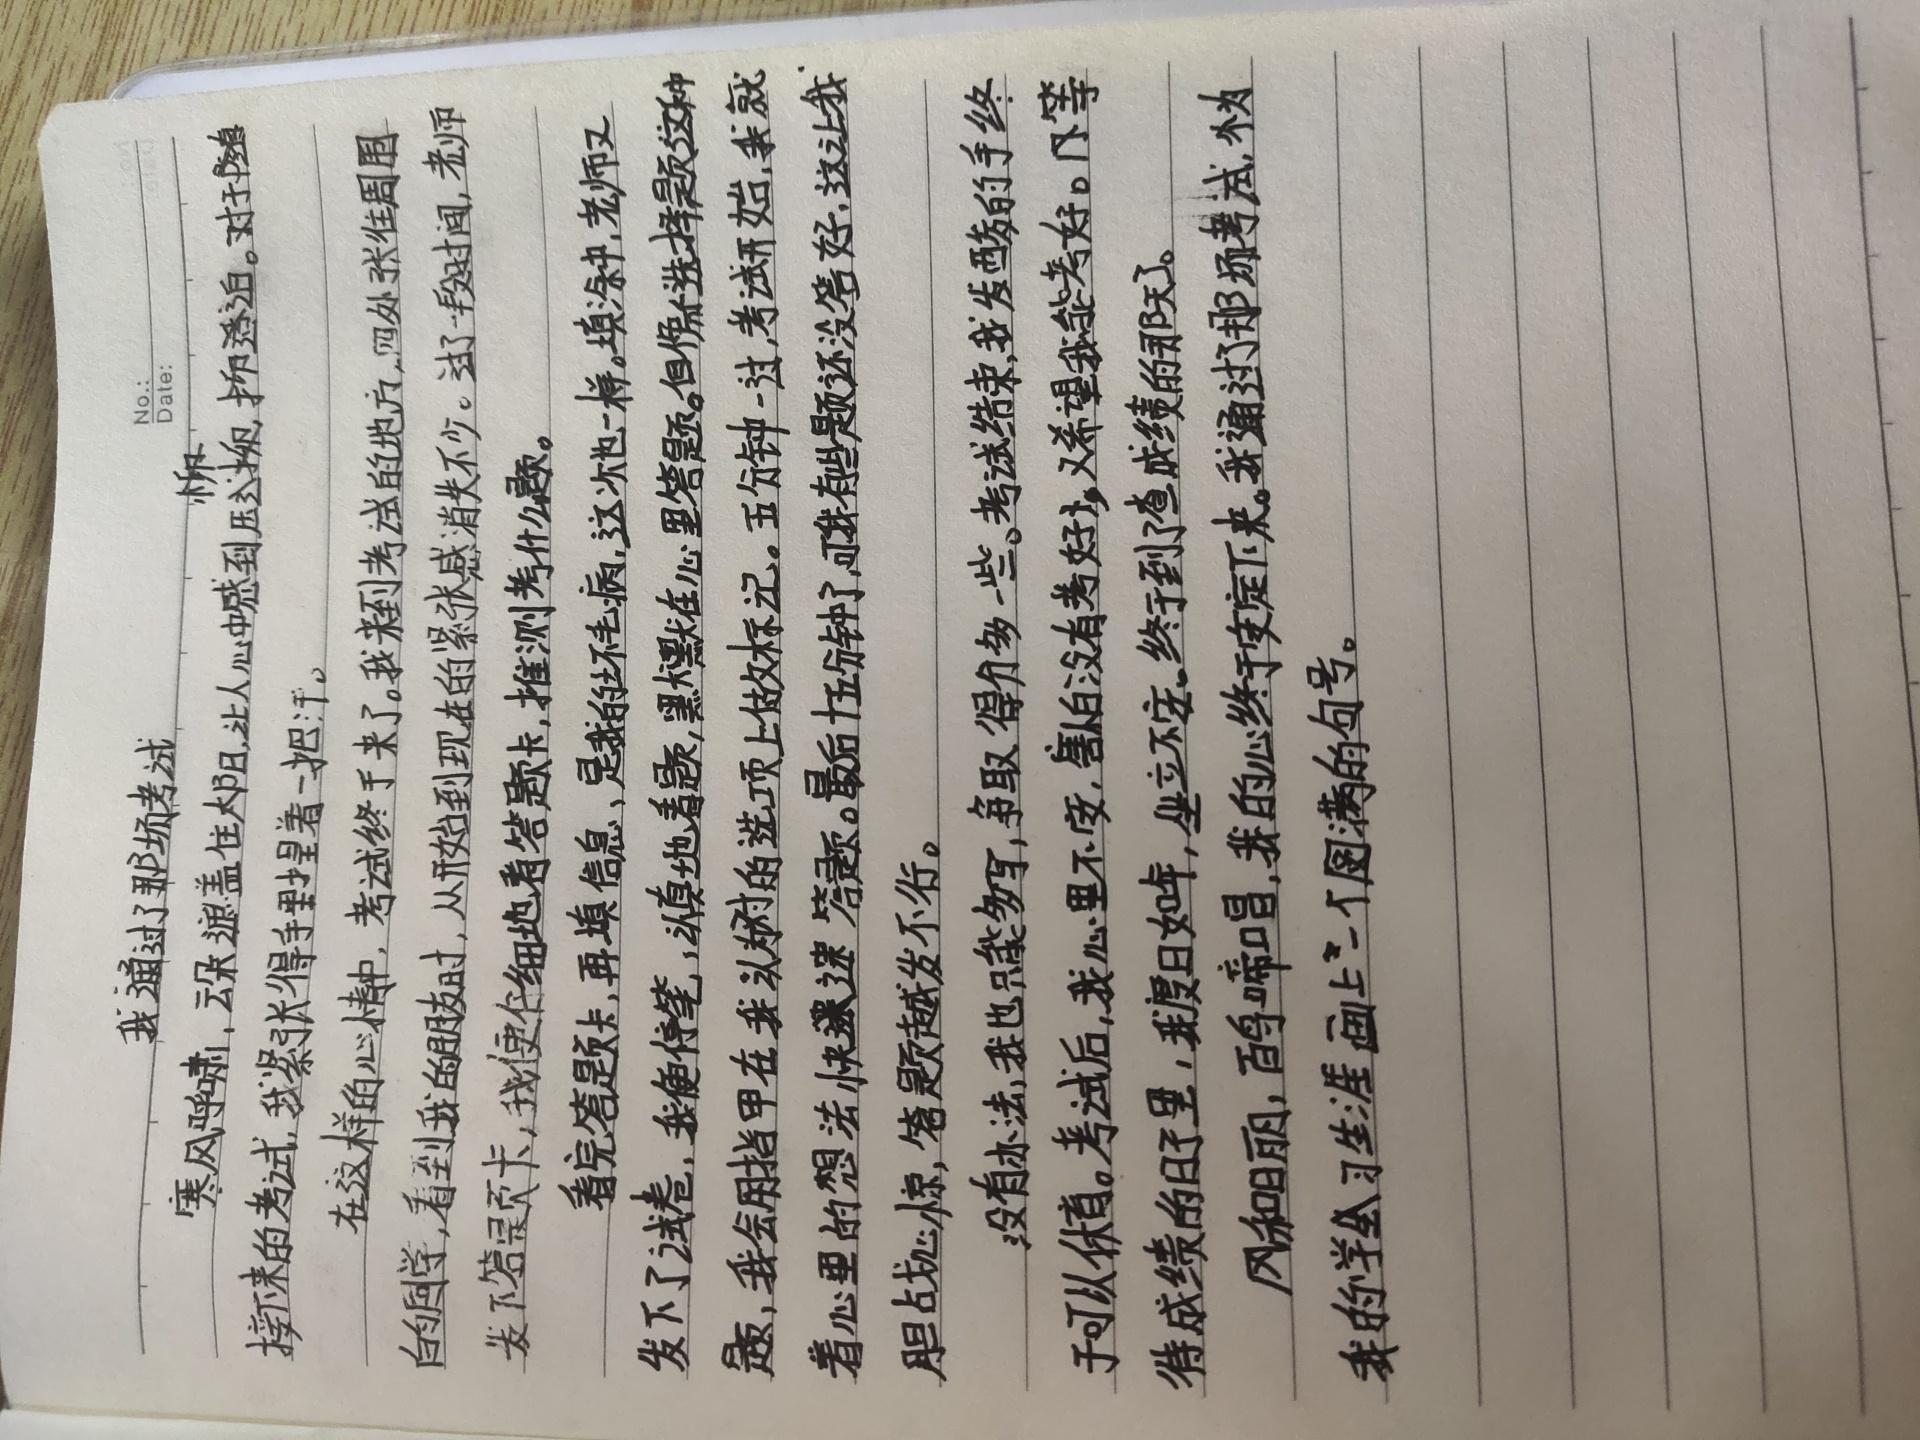 No.:
Date:
我通过了那场考试
寒风呼啸,云朵遮盖住太阳,让人心中感到压抑,抑迫。对于
接下来的考试,我紧张得手里捏着一把汗。
在这样的心情中,考试终于来了。我来到考试的地方,四处张望周围
的同学,看到我的朋友时,从开始到现在的紧张感消失不少。过了一段时间,老师
发下答题卡,我便仔细地看答题卡,推测考什么题。
看完答题卡,再填信息,是我的坏毛病,这次也一样。填涂中,老师又
发下了试卷,我便停笔,认真地看题,默默在心里答题。但像选择题这种
题,我会用指甲在我认为对的选项上做标记。五分钟一过,考试开始,我就
着心里的想法,快速答题。最后十五分钟了,可我有些题还没答好,这让我
胆战心惊,答题越发不行。
没有办法,我也只能勿写,争取得分多一些。考试结束,我发酸的手终
于可以休息。考试后,我心里不安,害怕没有考好,又希望我能考好。在等
待成绩的日子里,我度日如年,坐立不安。终于到了查成绩的那天。
风和日丽,百鸟啼唱,我的心终于安定下来。我通过了那场考试,为
我的学习生涯画上了一个圆满的句号。